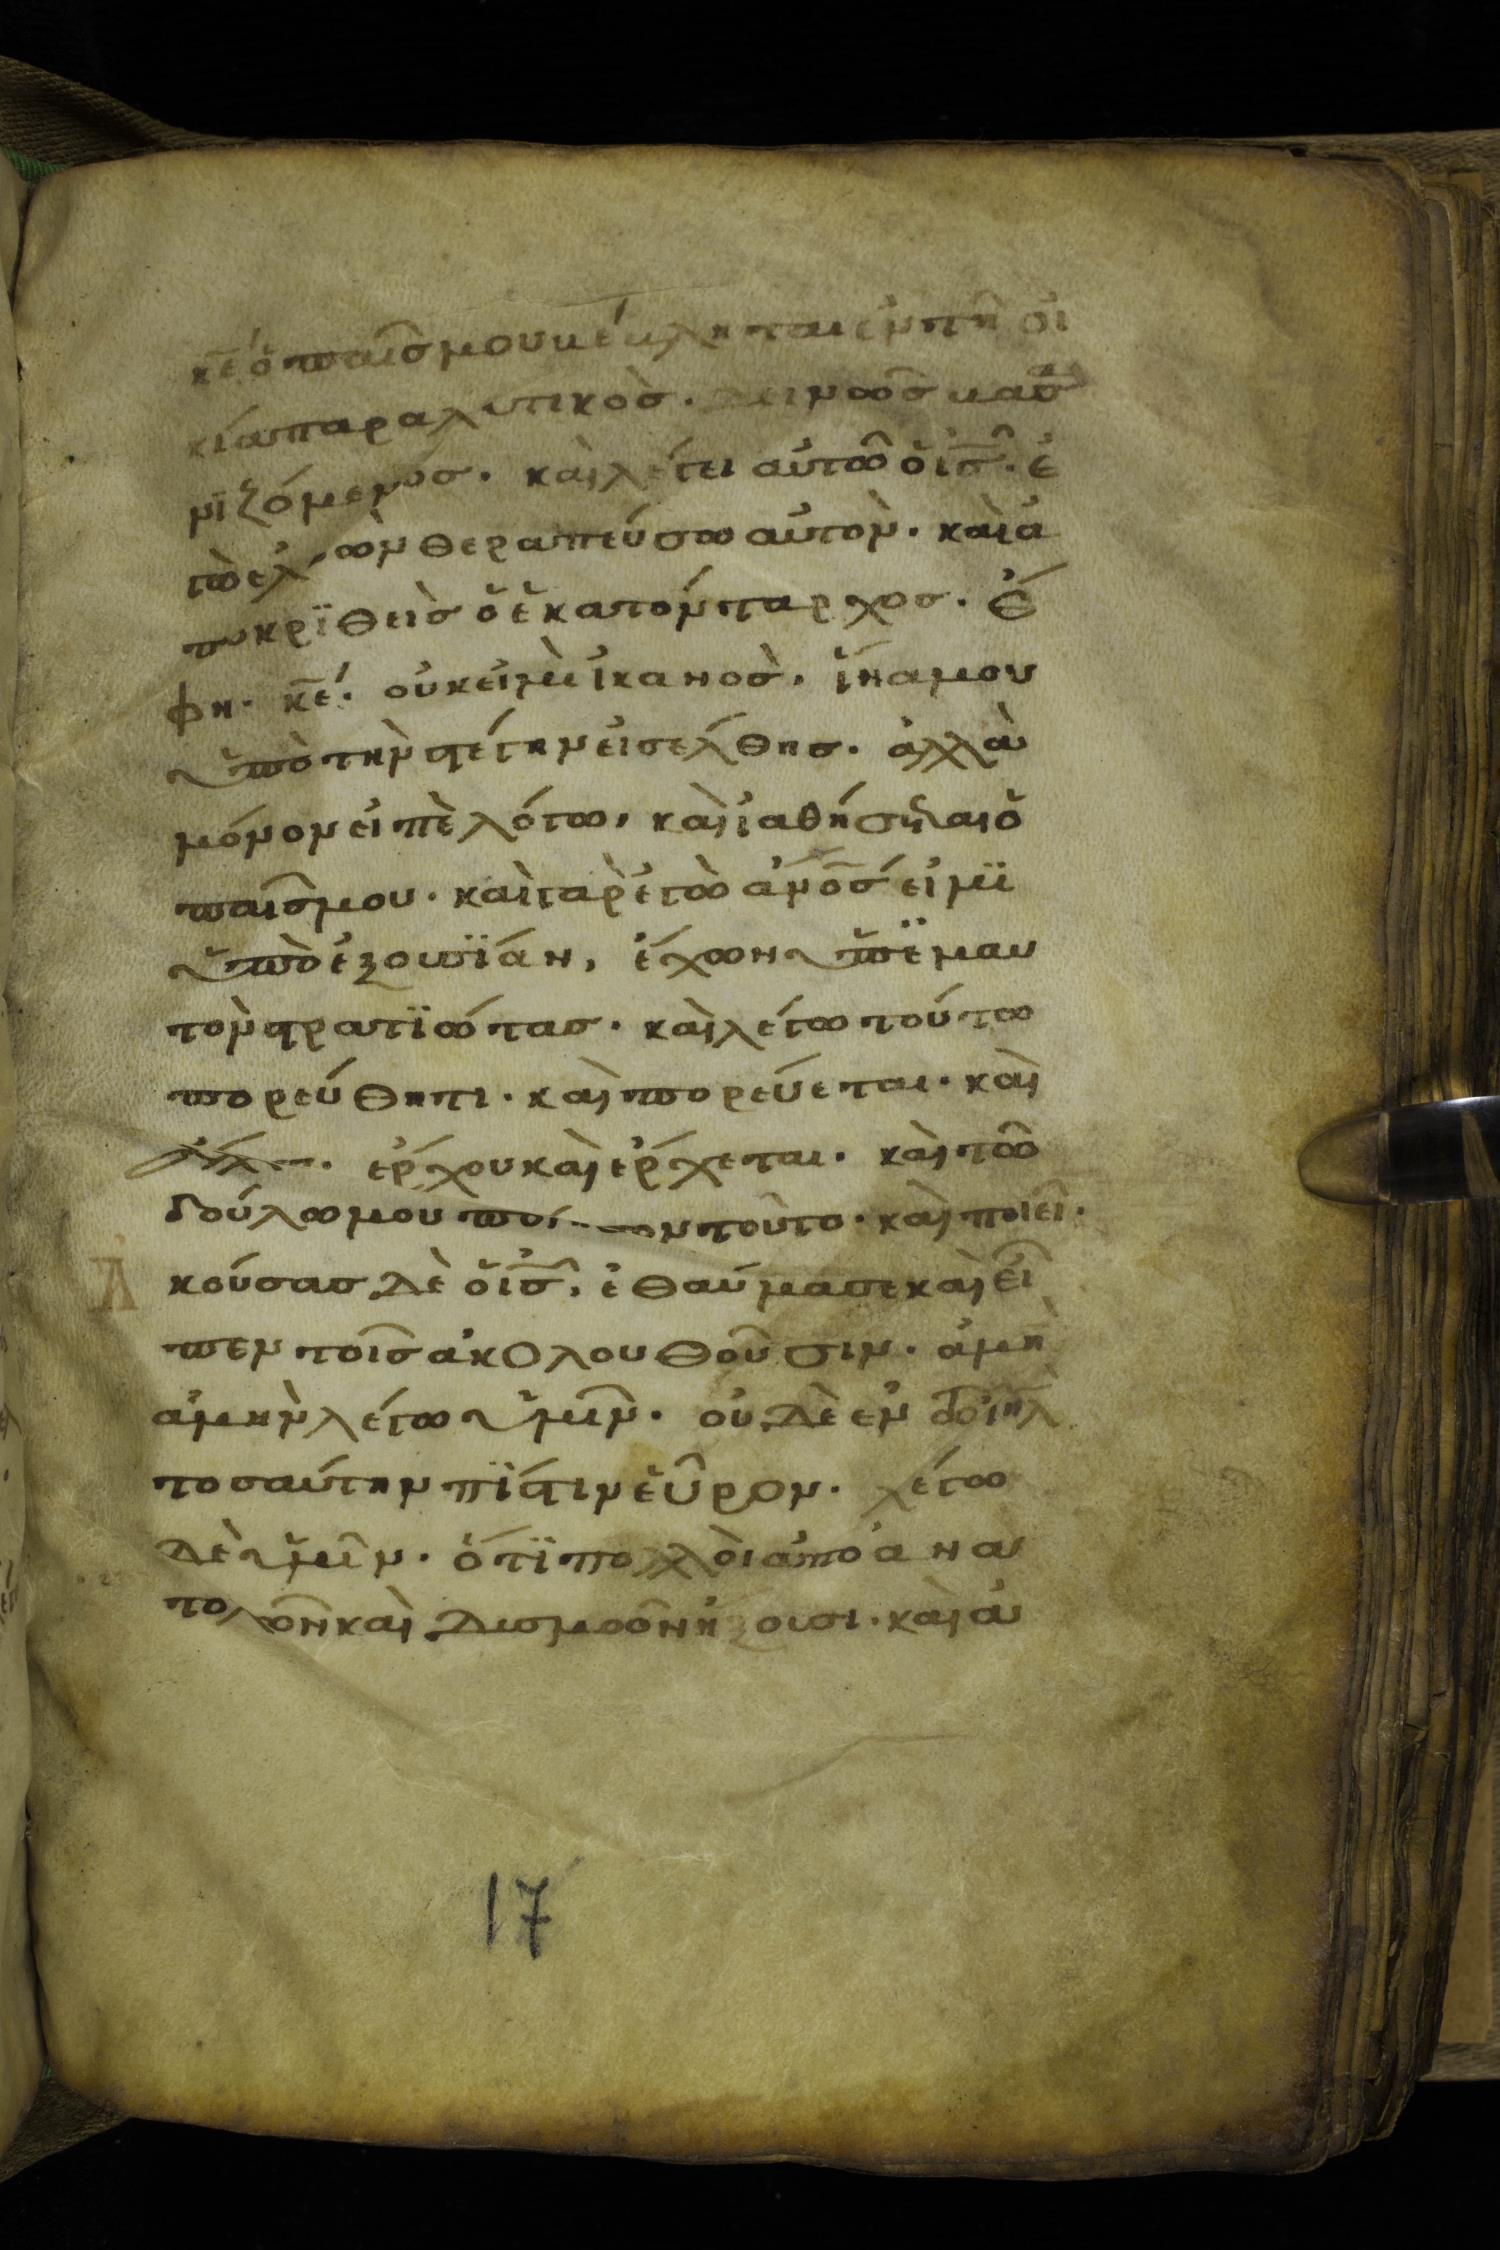 κε̅ ὁ παῖσ μου βέβληται ἐν τῆ οἰ
κία παραλυτικὸσ. δεινῶσ βασα
νϊζόμενοσ. καὶ λέγει αὐτῶ ὁ ισ̅. ἐ
γὼ ἐλθὼν θεραπεύσω αὐτὸν. καὶ ἀ
ποκρϊθεὶσ ὁ ἑκατόνταρχοσ. ἔ
φη. κε̅. οὐκ εἰμὶ ἱκανὸσ. ἵνα μου
ὑπὸ τὴν στέγην εἰσέλθησ. ἀλλὰ
μόνον εἰπὲ λόγω, καὶ ἰαθήσεται ὁ
παῖσ μου. καὶ γὰρ ἐγὼ ἀνο̅σ εἰμϊ
ὑπὸ ἐξουσΐαν, ἔχων ὑπ' ἐμαυ
τὸν στρατϊώτασ. καὶ λέγω τούτω
πορεύθητι. καὶ πορεύεται. καὶ
ἄλλω. ἔρχου καὶ ἔρχεται. καὶ τῶ
δούλω μου ποίησον τοῦτο. καὶ ποιεῖ.
Ἀκούσασ δὲ ὁ ισ̅, ἐθαύμασε καὶ εἶ
πεν τοῖσ ἀκολουθοῦσιν. ἀμὴ
ἀμὴν λέγω ὑμῖν. οὐδὲ ἐν τῶ ιη̅λ
τοσαύτην πΐστιν εὗρον. λέγω
δὲ ὑμῖν. ὅτϊ πολλοὶ ἀπὸ ἀνα
τολῶν καὶ δυσμῶν ἥξουσι. καὶ ἀ
17